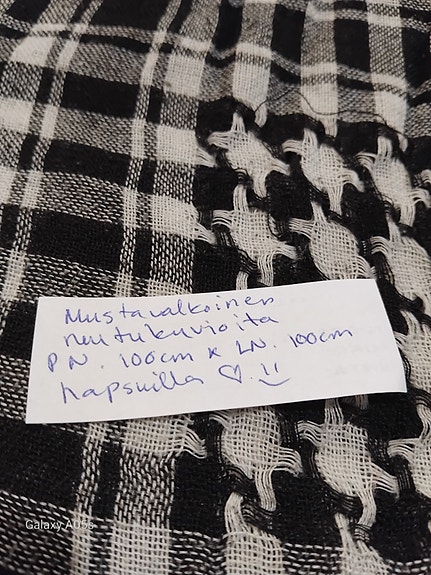 Mustavalkoinen
ruutukuvioita
PN. 100cm x LN. 100cm
hapsuilla ♡ :)
Galaxy A05s